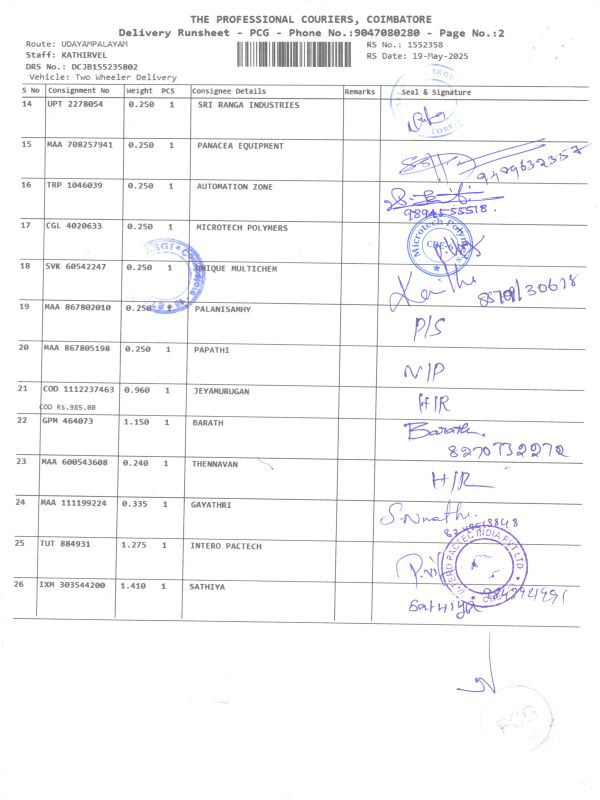 THE PROFESSIONAL COURIERS, COIMBATORE
Delivery Runsheet - PCG - Phone No.:9047080280 - Page No.:2
Route: UDAYAMPALAYAM RS No.: 1552358
Staff: KATHIRVEL RS Date: 19-May-2025
DRS No.: DCJB155235802
Vehicle: Two Wheeler Delivery
S No Consignment No Weight PCS Consignee Details Remarks Seal & Signature
14 UPT 2278054 0.250 1 SRI RANGA INDUSTRIES
15 MAA 708257941 0.250 1 PANACEA EQUIPMENT
9489632357
16 TRP 1046039 0.250 1 AUTOMATION ZONE
9894555518.
17 CGL 4020633 0.250 1 MICROTECH POLYMERS
Microtech Polymers CBE
18 SVK 60542247 0.250 1 UNIQUE MULTICHEM
19 MAA 867802010 0.250 1 PALANISAMHY P/S
20 MAA 867805198 0.250 1 PAPATHI N/P
21 COD 1112237463 0.960 1 JEYAMURUGAN H/R
COD RS.985.00
22 GPM 464073 1.150 1 BARATH Barath.
8270732272
23 MAA 600543608 0.240 1 THENNAVAN H/R
24 MAA 111199224 0.335 1 GAYATHRI
25 TUT 884931 1.275 1 INTERO PACTECH
INTERO PACTEC INDIA PVT LTD
26 IXM 303544200 1.410 1 SATHIYA Sathiya
PCG